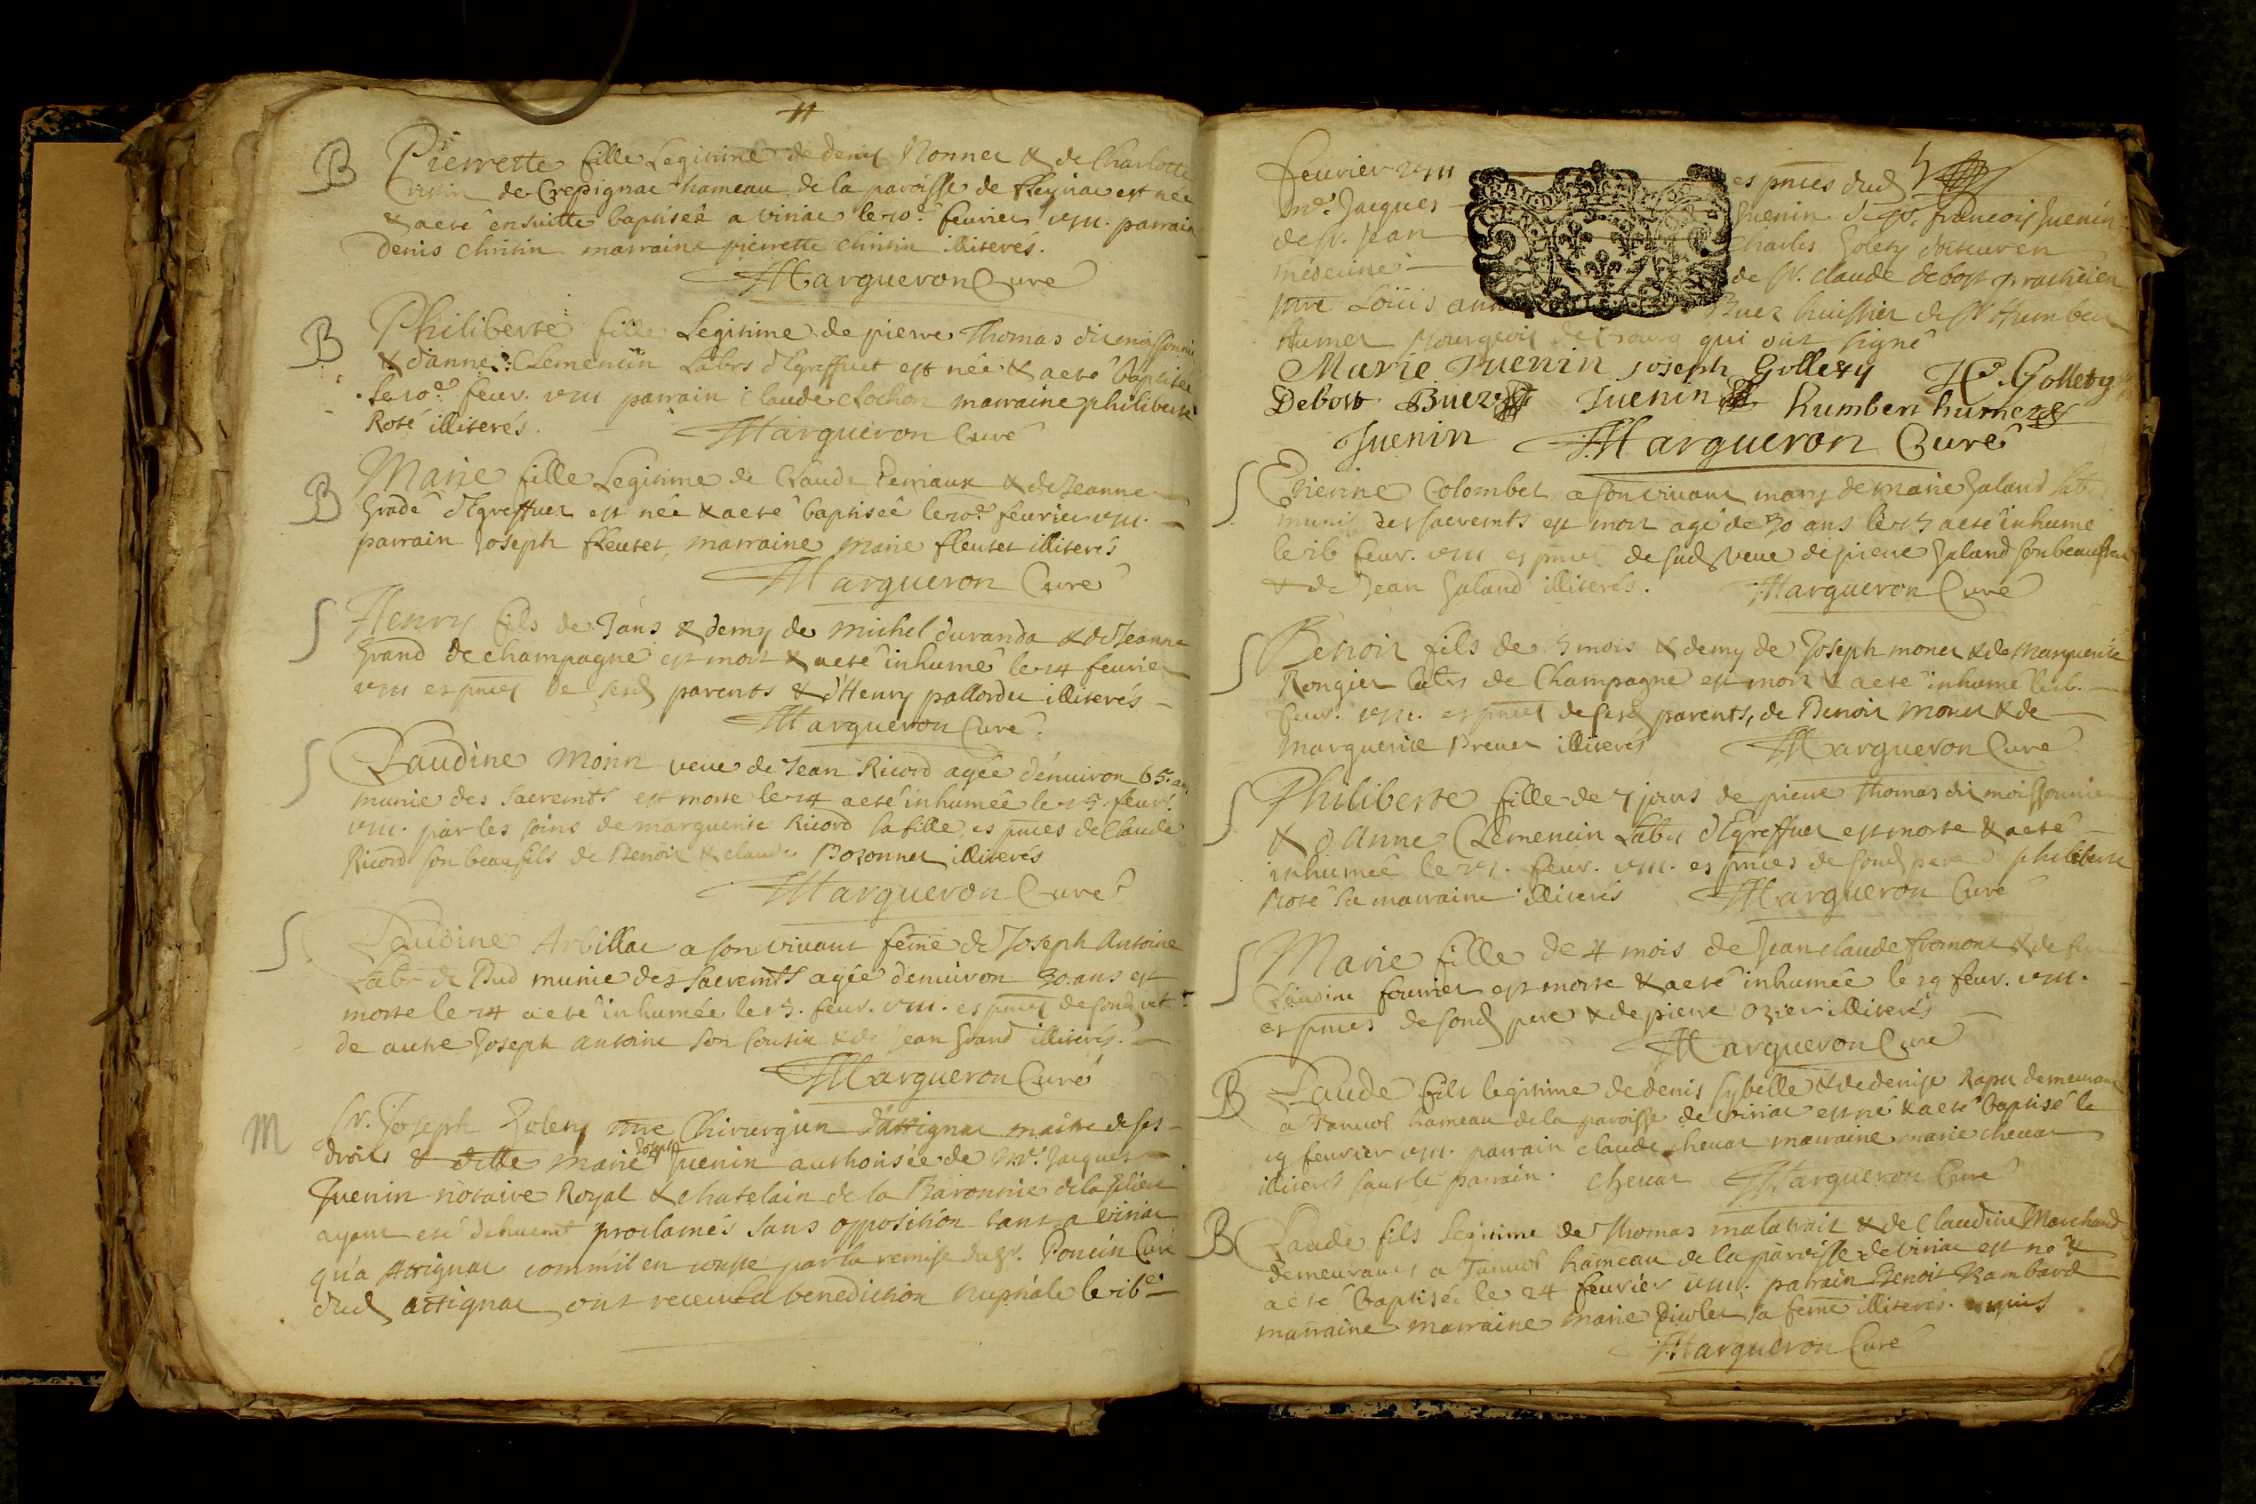 Pierrette fille Legitime de denis Monnet & de Charlotte
Cristin de Crepignac hameau de la paroisse de fleyriac est née
& a eté ensuitte baptiseé a viriac le 10e fevrier 1711. parrain
denis christin marraine pierrette christin illiterés.
Margueron Curé
B
Philiberte fille Legitime de pierre Thomas dit moissonnier
& d'anne Clemencin Labrs d'Egreffuet est née & a eté baptisée
le 10e fevr. 1711 parrain claude Clochon marraine philiberte
Rosé illiterés. Margueron Curé
B
Marie fille Legitime de Claude Perriaux & de Jeanne
Gradé d'Egreffuet est née & a eté baptiseé le 10e fevrier 1711.
parrain Joseph fleutet, marraine marie fleutet illiterés
Margueron Curé
B
Henry fils de 7 ans & demy de michel duranda & de Jeanne
Grand de champagne est mort & a eté inhumé le 14 fevrier
1711 es pnces de sesd parents & d'Henry pallordet illiterés
Margueron Curé
S
Claudine Monin veuve de Jean Ricord agée d'environ 65. ans
munie des sacremts est morte le 14 a eté inhumée le 15. fevr.
1711. par les soins de marguerite Ricord sa fille, es pnces de Claude
Ricord son beau fils de Benoit & claude Bozonnet illiterés
Margueron Curé
S
Claudine Arbillac a son vivant feme de Joseph Antoine
Labr de Bud munie des sacremts agée d'environ 30. ans est
morte le 14 a eté inhumée le 15. fevr. 1711. es pnces de sond
de autre Joseph antoine son cousin & de Jean Grand illiterés.
Margueron Curé
S
M
Sr. Joseph Golety mre Chirurgien d'attignac maitre de ses
droits & dlle Marie Joseph Juenin authorisée de Mr. Jacques
Juenin notaire Royal & chatelain de la Baronnie de la
ayant eté dehuemt proclamés sans opposition tant a viriac
qu'a Attignac comm'il en conste par la remise du Sr. Poncin Curé
dud attignac ont receu la benediction nuptiale le 16e
fevrier 1711 es pnces dud
Mr. Jacques Juenin de Sr. francois Juenin
de Sr. Jean Charles Golety docteur en
medecine de Sr. claude debost praticien
mre Loüis Buez huissier de Sr Humbert
humet bourgeois de bourg qui ont signé
Marie Juenin Joseph Gollety Gollety
Debost Buez Juenin humbert humet
Juenin Margueron Curé
S
Etienne Colombet a son vivant mary de marie Galand Labr
muni des sacremts est mort agé de 30 ans le 15 a eté inhumé
le 16 fevr. 1711 es pnces de sad veuve de pierre Galand son beau frere
& de Jean Galand illiterés. Margueron Curé
S
Benoit fils de 5 mois & demy de Joseph monet & de Marguerite
Rongier Labrs de Champagne est mort & a eté inhumé le 16.
fevr. 1711. es pnces de sesd parents, de Benoit monet & de
Marguerite Prevet illiterés Margueron Curé
S
Philiberte fille de 7 jours de pierre Thomas dit moissonnier
& d'Anne Clemencin Labrs d'Egreffuet est morte & a eté
inhumée le 17. fevr. 1711. es pnces de sond pere & philiberte
Rosé sa marraine illiterés Margueron Curé
S
Marie fille de 4 mois de Jean claude fromont & de
Claudine fournier est morte & a eté inhumée le 19 fevr. 1711.
es pnces de sond pere & de pierre ozier illiterés
Margueron Curé
B
Claude fils legitime de denis sybelle & de denise Raput demeurant
a Tanvol hameau de la paroisse de viriac est né & a eté baptisé le
19 fevrier 1711. parrain claude chevat marraine marie chevat
illiterés sauf le parrain. chevat Margueron Curé
B
Claude fils Legitime de Thomas malatrait & de Claudine Marchand
demeurants a Tanvol hameau de la paroisse de viriac est né &
a eté baptisé le 24 fevrier 1711. parrain Benoit Rambard
marraine marraine marie Piolet sa feme illiterés.
Margueron Curé